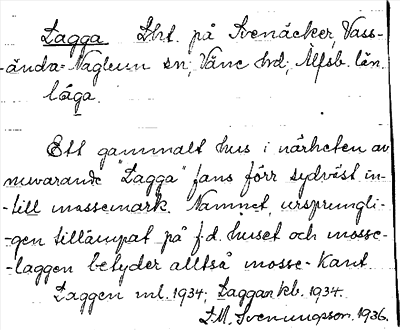 Lagga Lht. på Svenåcker, Vass-
ända-Naglum sn; Väne hd; Älfsb. län.
låga.
Ett gammalt hus i närheten av
nuvarande "Lagga" fans förr sydväst in-
-till mossemark. Namnet, ursprungli-
-gen tillämpat på f.d. huset och mosse-
-laggen betyder alltså mosse-kant.
Laggen ml. 1934; Laggan kb. 1934.
L.M. Svenungsson. 1936.